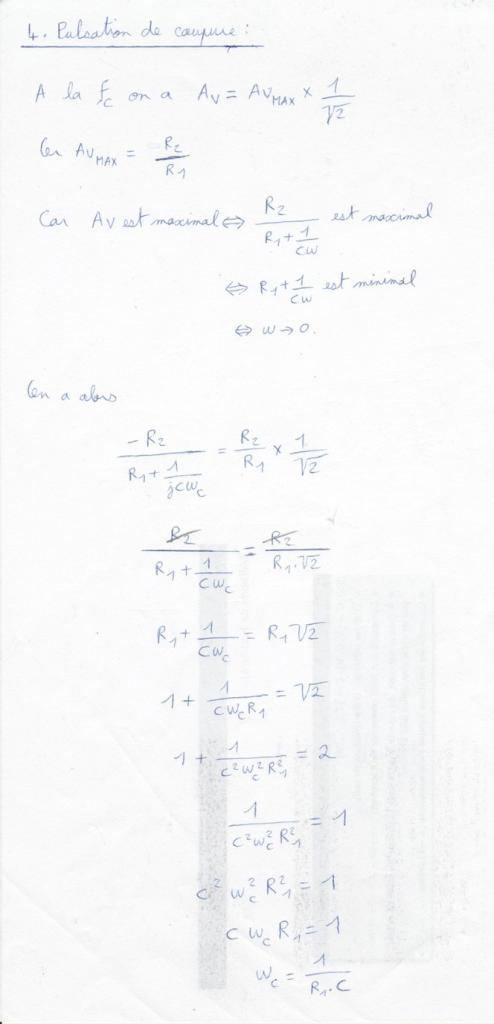 4. Pulsation de coupure :
A la fc on a Av = AvMAX × 1/√2
Or AvMAX = R2/R1
Car Av est maximal ⇔ R2/(R1 + 1/CW) est maximal
⇔ R1 + 1/CW est minimal
⇔ W → 0.
On a alors
-R2/(R1 + 1/jCWc) = R2/R1 × 1/√2
R2/(R1 + 1/CWc) = R2/(R1.√2)
R1 + 1/CWc = R1√2
1 + 1/(CWcR1) = √2
1 + 1/(C²Wc²R1²) = 2
1/(C²Wc²R1²) = 1
C² Wc² R1² = 1
C Wc R1 = 1
Wc = 1/(R1.C)